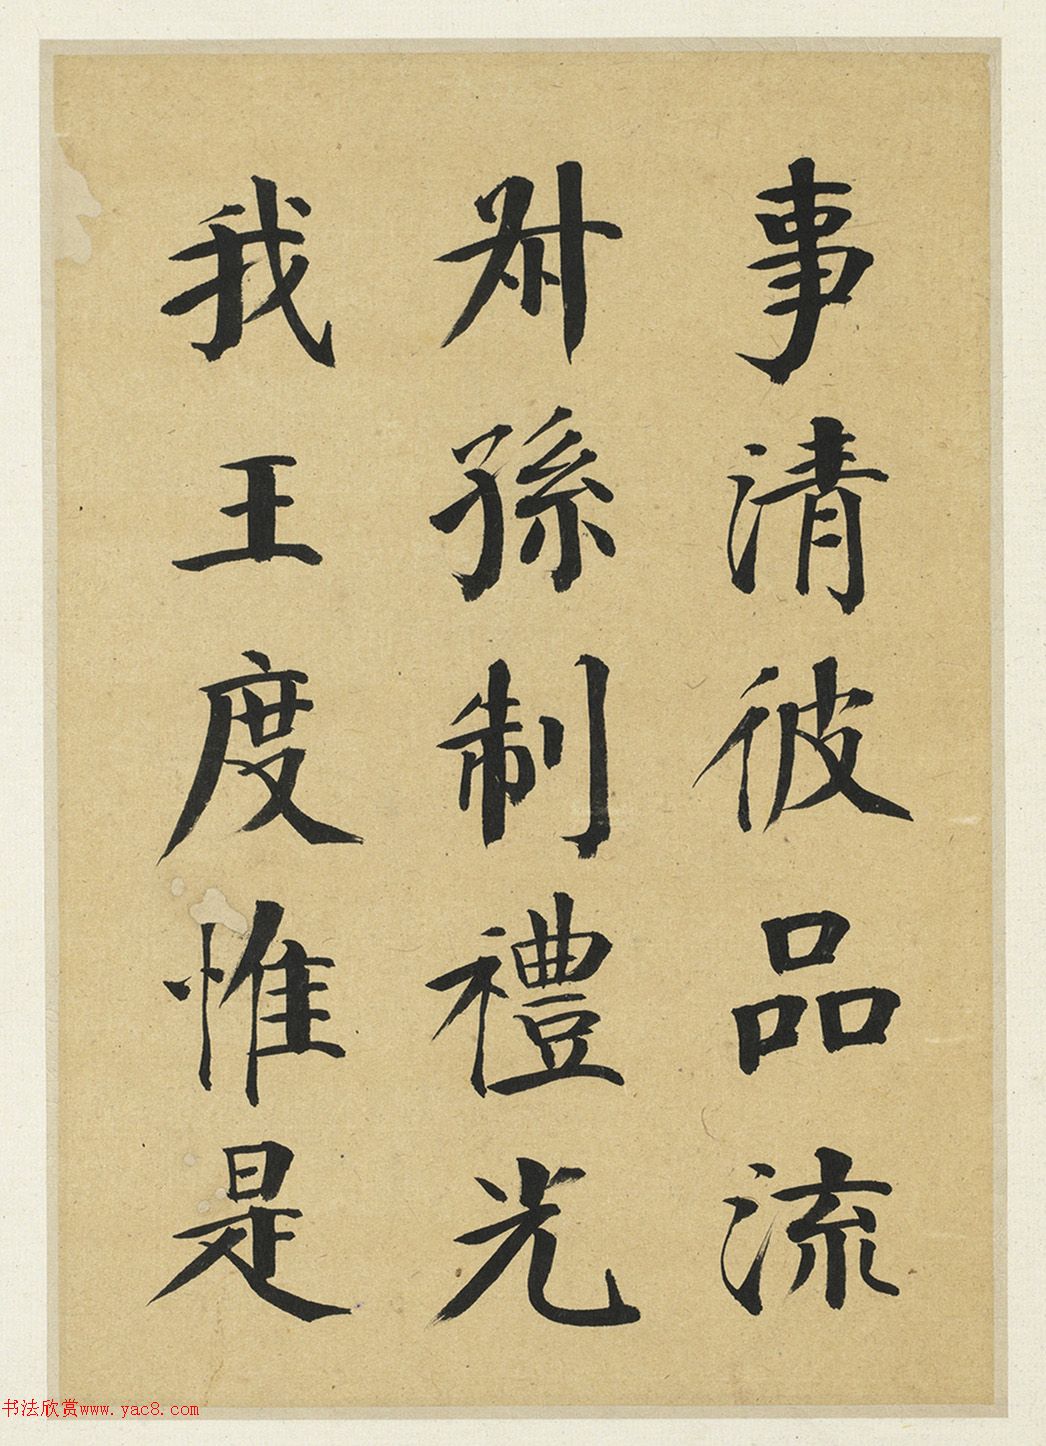 事清彼品流
叔孫制禮光
我王度惟是
书法欣赏www.yac8.com